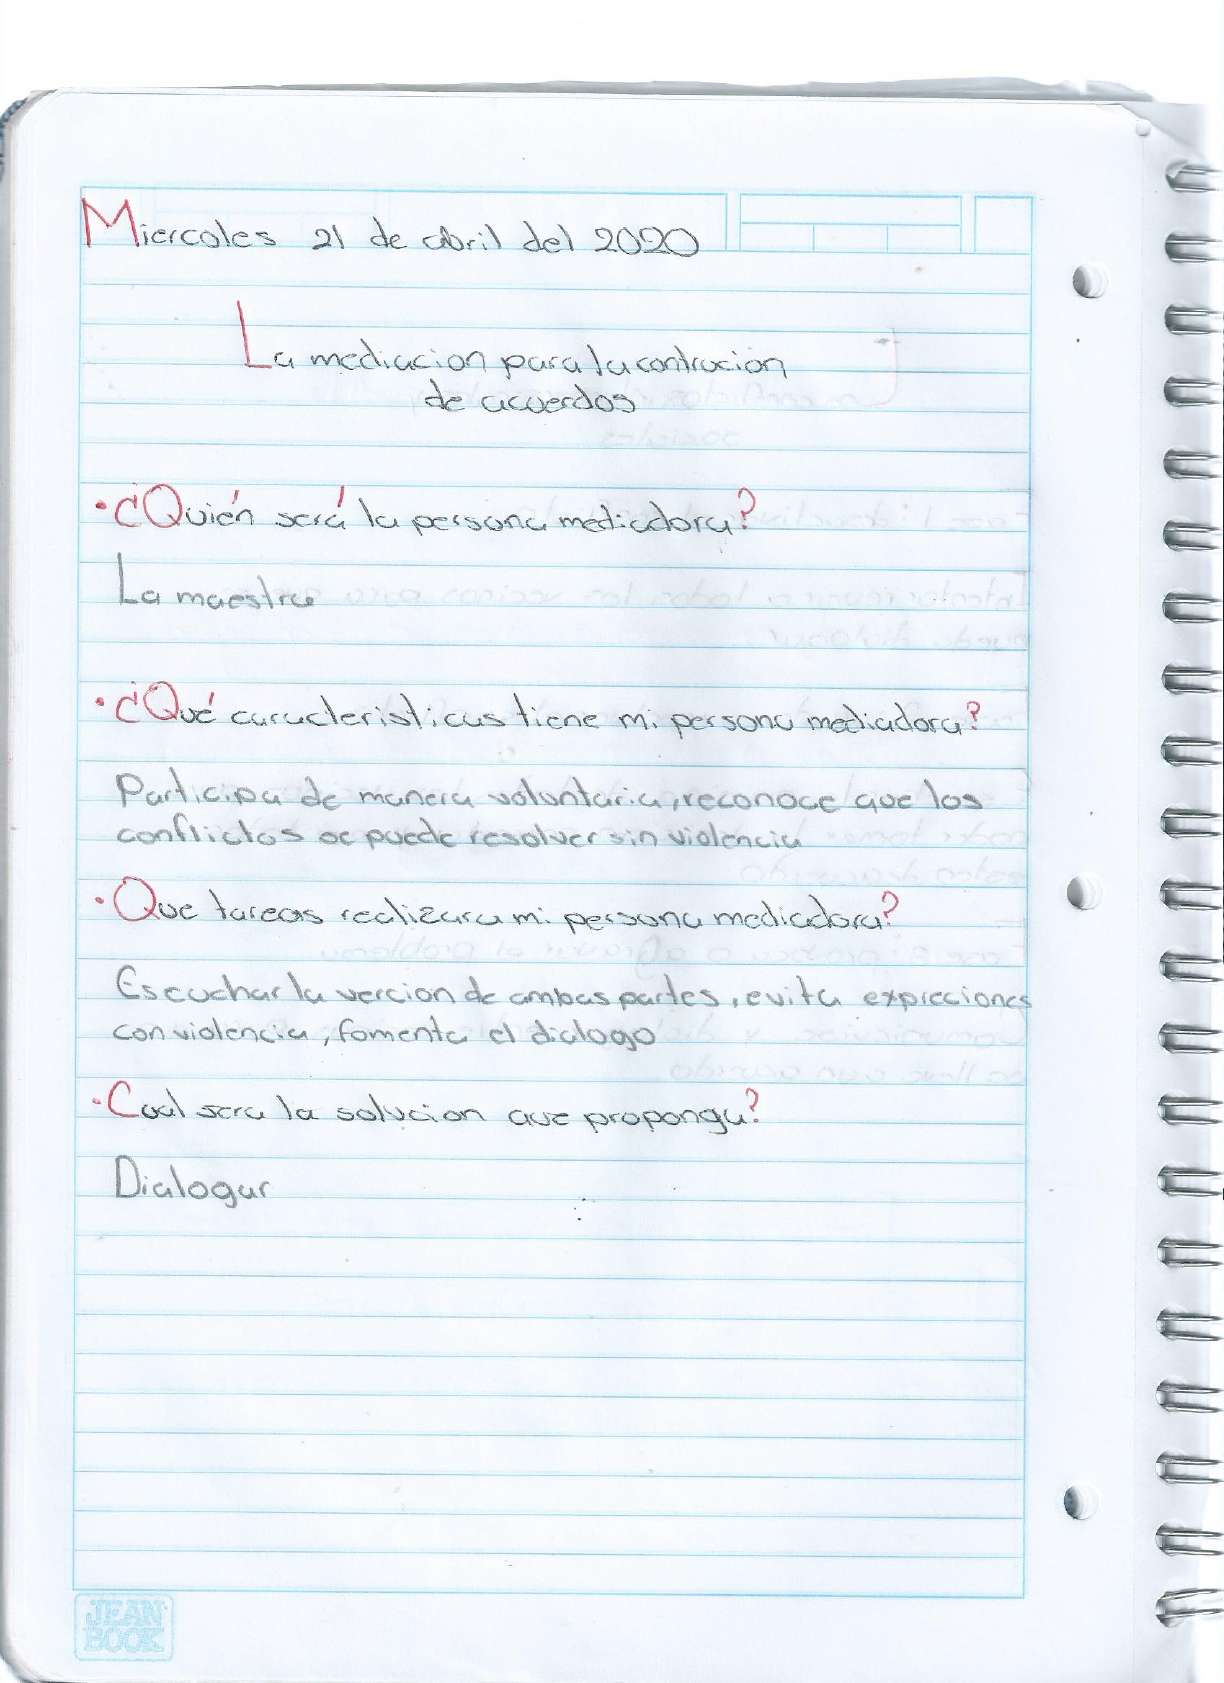 Miercoles 21 de abril del 2020
La mediacion para la contrucion
de acuerdos
• ¿Quién será la persona mediadora?
La maestra
• ¿Qué caracteristicas tiene mi persona mediadora?
Participa de manera voluntaria, reconoce que los
conflictos se puede resolver sin violencia
• Que tareas realizara mi persona mediadora?
Escuchar la vercion de ambas partes, evita expreciones
con violencia, fomenta el dialogo
• Cual sera la solucion que proponga?
Dialogar
JEAN
BOOK